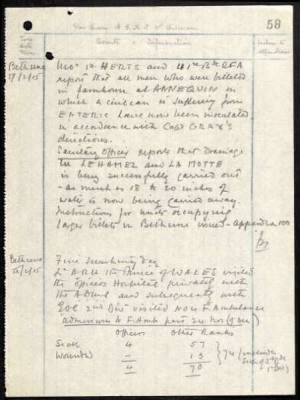 58
War Diary A.D.M.S. 2nd Division
Events & Information
Bethune
17/2/15
1st HERTS and 41st Bde RFA
report that all men who were billeted
in farmhouse at ANNEQUIN in
which a civilian is suffering from
ENTERIC have now been inoculated
in accordance with Capt GRAY's
directions.
Sanitary Officer reports that drainage
in LE HAMEL and LA MOTTE
is being successfully carried out
- as much as 18 to 20 inches of
water is now being carried away.
Instructions for units occupying
larger billets in Bethune issued - Appendix
Bethune
/2/15
Fine Day
H.R.H. The Prince of WALES visited
the Officers Hospital privately with
the ADMS and subsequently with
GOC 2nd Div visited No 5 F. Ambulance
Admissions to F Amb
Officers Other Ranks
Sick 4 57
Wounded - 13
4 70
74